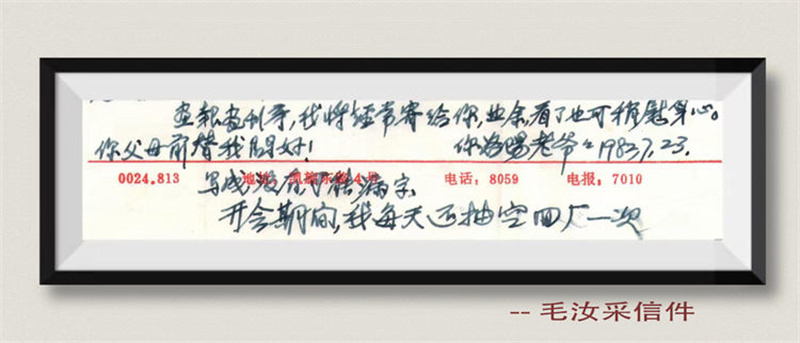 画报画刊等,我将经常寄给你,业余,看了也可稍慰身心。
你父母前替我问好! 你洛阳老爷 1983.7.23.
0024.813 地址: 凯旋东路4号 电话: 8059 电报: 7010
写成没有可能漏字
开会期间,我每天还抽空回厂一次
-- 毛汝采信件